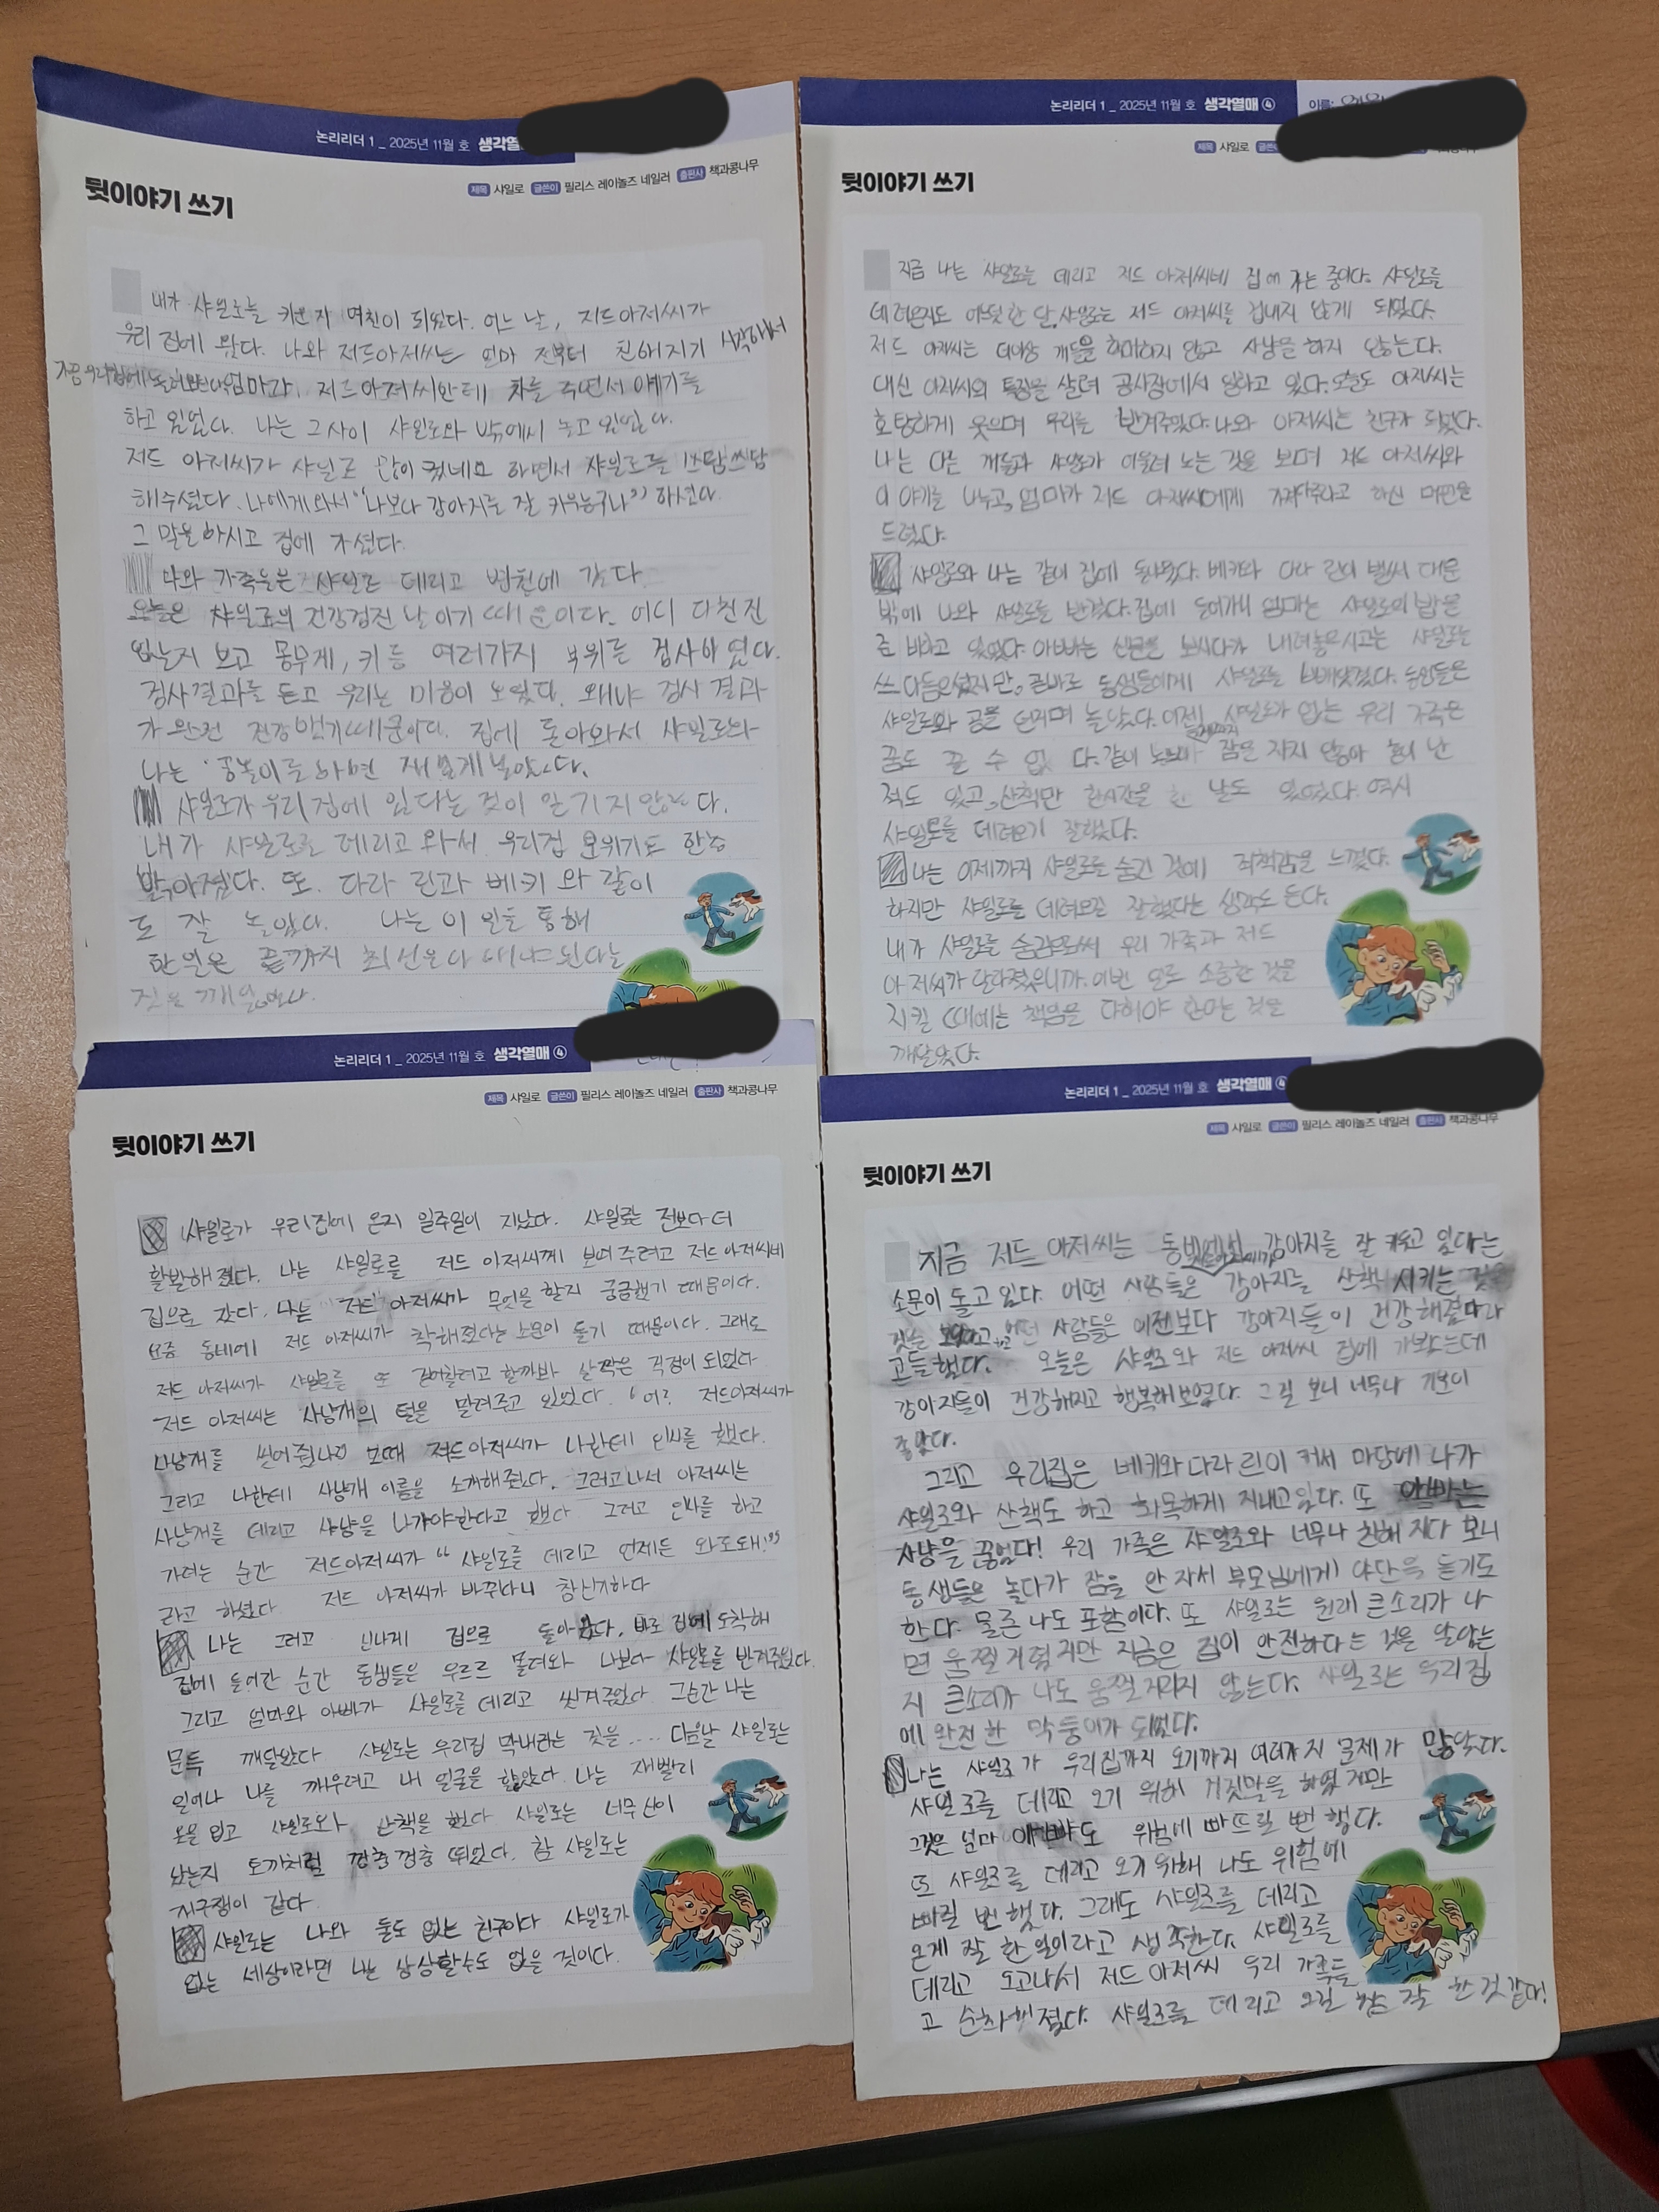 논리리더 1 _ 2025년 11월 호 생각열
제목 샤일로 글쓴이 필리스 레이놀즈 네일러 출판사 책과콩나무
뒷이야기 쓰기
내가 샤일로를 키운지 몇천이 되었다. 어느 날, 저드아저씨가
우리 집에 왔다. 나와 저드아저씨는 얼마 전부터 친해지기 시작해서
가끔 우리집에 놀러온다. 엄마가, 저드아저씨한테 차를 주면서 얘기를
하고 있었다. 나는 그사이 샤일로와 밖에서 놀고 있었다.
저드 아저씨가 샤일로 많이 컸네요 하면서 샤일로를 쓰담쓰담
해주셨다. 나에게 와서 "나보다 강아지를 잘 키우는구나" 하셨다.
그 말을 하시고 집에 가셨다.
나와 가족들은 샤일로 데리고 병원에 갔다.
오늘은 샤일로의 건강검진 날이기 때문이다. 어디 다친진
있는지 보고 몸무게, 키 등 여러가지 부위를 검사하였다.
검사결과를 듣고 우리는 마음이 놓였다. 왜냐 검사 결과
가 완전 건강했기때문이다. 집에 돌아와서 샤일로와
나는 공놀이를 하면 재밌게 놀았다.
샤일로가 우리 집에 있다는 것이 믿기지 않는다.
내가 샤일로를 데리고 와서 우리집 분위기도 한층
밝아졌다. 또. 다라 린과 베키 와 같이
도 잘 놀았다. 나는 이 일을 통해
한일은 끝까지 최선을 다 해야된다는
것을 깨달았다.
논리리더 1 _ 2025년 11월 호 생각열매 ④ 이름:
제목 샤일로 글쓴
뒷이야기 쓰기
지금 나는 샤일로를 데리고 저드 아저씨네 집에 가는 중이다. 샤일로를
데려온지도 어느덧 한 달, 샤일로는 저드 아저씨를 겁내지 않게 되었다.
저드 아저씨는 더이상 개들을 학대하지 않고 사냥을 하지 않는다.
대신 아저씨의 특징을 살려 공사장에서 일하고 있다. 오늘도 아저씨는
호탕하게 웃으며 우리를 반겨주었다. 나와 아저씨는 친구가 되었다.
나는 다른 개들과 샤일로가 어울려 노는 것을 보며 저드 아저씨와
이야기를 나누고, 엄마가 저드 아저씨에게 가져다주라고 하신 머핀을
드렸다.
샤일로와 나는 같이 집에 돌아왔다. 베키와 다라 린이 벌써 대문
밖에 나와 샤일로를 반겼다. 집에 들어가니 엄마는 샤일로의 밥을
준비하고 있었다. 아빠는 신문을 보시다가 내려놓으시고는 샤일로를
쓰다듬으셨지만, 곧바로 동생들에게 샤일로를 빼앗겼다. 동생들은
샤일로와 공을 던지며 놀았다. 이젠 샤일로가 없는 우리 가족은
꿈도 꿀 수 없다. 같이 노느라 잠을 자지 않아 혼이 난
적도 있고, 산책만 한시간을 한 날도 있었다. 역시
샤일로를 데려오기 잘했다.
나는 이제까지 샤일로를 숨긴 것에 죄책감을 느꼈다.
하지만 샤일로를 데려오길 잘했다는 생각도 든다.
내가 샤일로를 숨김으로써 우리 가족과 저드
아저씨가 달라졌으니까. 이번 일로 소중한 것을
지킬 때에는 책임을 다해야 한다는 것을
깨달았다.
논리리더 1 _ 2025년 11월 호 생각열매 ④
제목 샤일로 글쓴이 필리스 레이놀즈 네일러 출판사 책과콩나무
뒷이야기 쓰기
샤일로가 우리집에 온지 일주일이 지났다. 샤일로는 전보다 더
활발해졌다. 나는 샤일로를 저드 아저씨께 보여주려고 저드 아저씨네
집으로 갔다. 나는 저드 아저씨가 무엇을 할지 궁금했기 때문이다.
요즘 동네에 저드 아저씨가 착해졌다는 소문이 돌기 때문이다. 그래도
저드 아저씨가 샤일로를 또 걷어찰려고 할까봐 살짝은 걱정이 되었다
저드 아저씨는 사냥개의 털을 말려주고 있었다. '어? 저드아저씨가
사냥개를 씻어줬나' 그때 저드아저씨가 나한테 인사를 했다.
그리고 나한테 사냥개 이름을 소개해줬다. 그러고나서 아저씨는
사냥개를 데리고 사냥을 나가야한다고 했다 그러고 인사를 하고
가려는 순간 저드아저씨가 "샤일로를 데리고 언제든 와도돼!"
라고 하셨다 저드 아저씨가 바뀌다니 참 신기하다
나는 그러고 신나게 집으로 돌아왔다. 바로 집에 도착해
집에 들어간 순간 동생들은 우르르 몰려와 나보다 샤일로를 반겨주었다.
그리고 엄마와 아빠가 샤일로를 데리고 씻겨주었다 그순간 나는
문득 깨달았다 샤일로는 우리집 막내라는 것을.... 다음날 샤일로는
일어나 나를 깨우려고 내 얼굴을 핥았다. 나는 재빨리
옷을 입고 샤일로와 산책을 했다 샤일로는 너무 신이
났는지 토끼처럼 껑충 껑충 뛰었다. 참 샤일로는
개구쟁이 같다
샤일로는 나와 둘도 없는 친구이다 샤일로가
없는 세상이라면 나는 상상할수도 없을 것이다.
논리리더 1 _ 2025년 11월 호 생각열매 ④
제목 샤일로 글쓴이 필리스 레이놀즈 네일러 출판사 책과콩나무
뒷이야기 쓰기
지금 저드 아저씨는 동네에서 강아지를 잘 키우고 있다는
소문이 돌고 있다. 어떤 사람들은 강아지를 산책 시키는 것을
어떤 사람들은 이전보다 강아지들이 건강해졌다라
고들 했다. 오늘은 샤일로와 저드 아저씨 집에 가봤는데
강아지들이 건강해지고 행복해보였다. 그걸 보니 너무나 기분이
좋았다.
그리고 우리집은 베키와 다라 린이 커서 마당에 나가
샤일로와 산책도 하고 화목하게 지내고있다. 또 아빠는
사냥을 끊었다! 우리 가족은 샤일로와 너무나 친해 지다 보니
동생들은 놀다가 잠을 안 자서 부모님에게 야단을 듣기도
한다. 물론 나도 포함이다. 또 샤일로는 원래 큰소리가 나
면 움찔거렸지만 지금은 집이 안전하다는 것을 알았는
지 큰소리가 나도 움찔거리지 않는다. 샤일로는 우리집
에 완전한 막둥이가 되었다.
나는 샤일로가 우리집까지 오기까지 여러가지 문제가 많았다.
샤일로를 데리고 오기 위해 거짓말을 하였지만
그것은 엄마 아빠도 위험에 빠뜨릴 뻔 했다.
또 샤일로를 데리고 오기 위해 나도 위험에
빠질 뻔 했다. 그래도 샤일로를 데리고
온게 잘 한 일이라고 생각한다. 샤일로를
데리고 오고나서 저드 아저씨 우리 가족들
고 순해졌다. 샤일로를 데리고 오길 참 잘 한 것 같다!